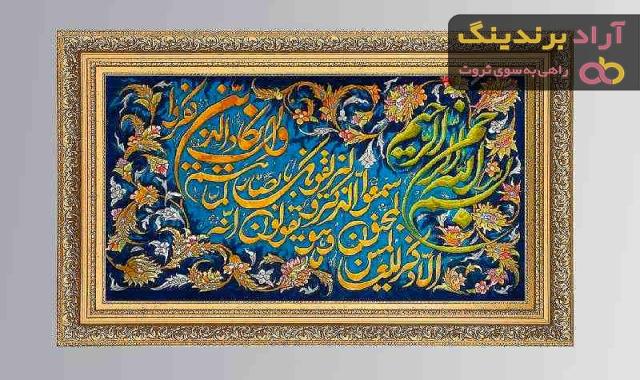 آراد برندینگ
راهی به سوی ثروت
بسم الله الرحمن الرحیم
وان یکاد الذین کفروا
لیزلقونک بابصارهم لما
سمعوا الذکر و یقولون انه
لمجنون و ما هو
الا ذکر للعالمین